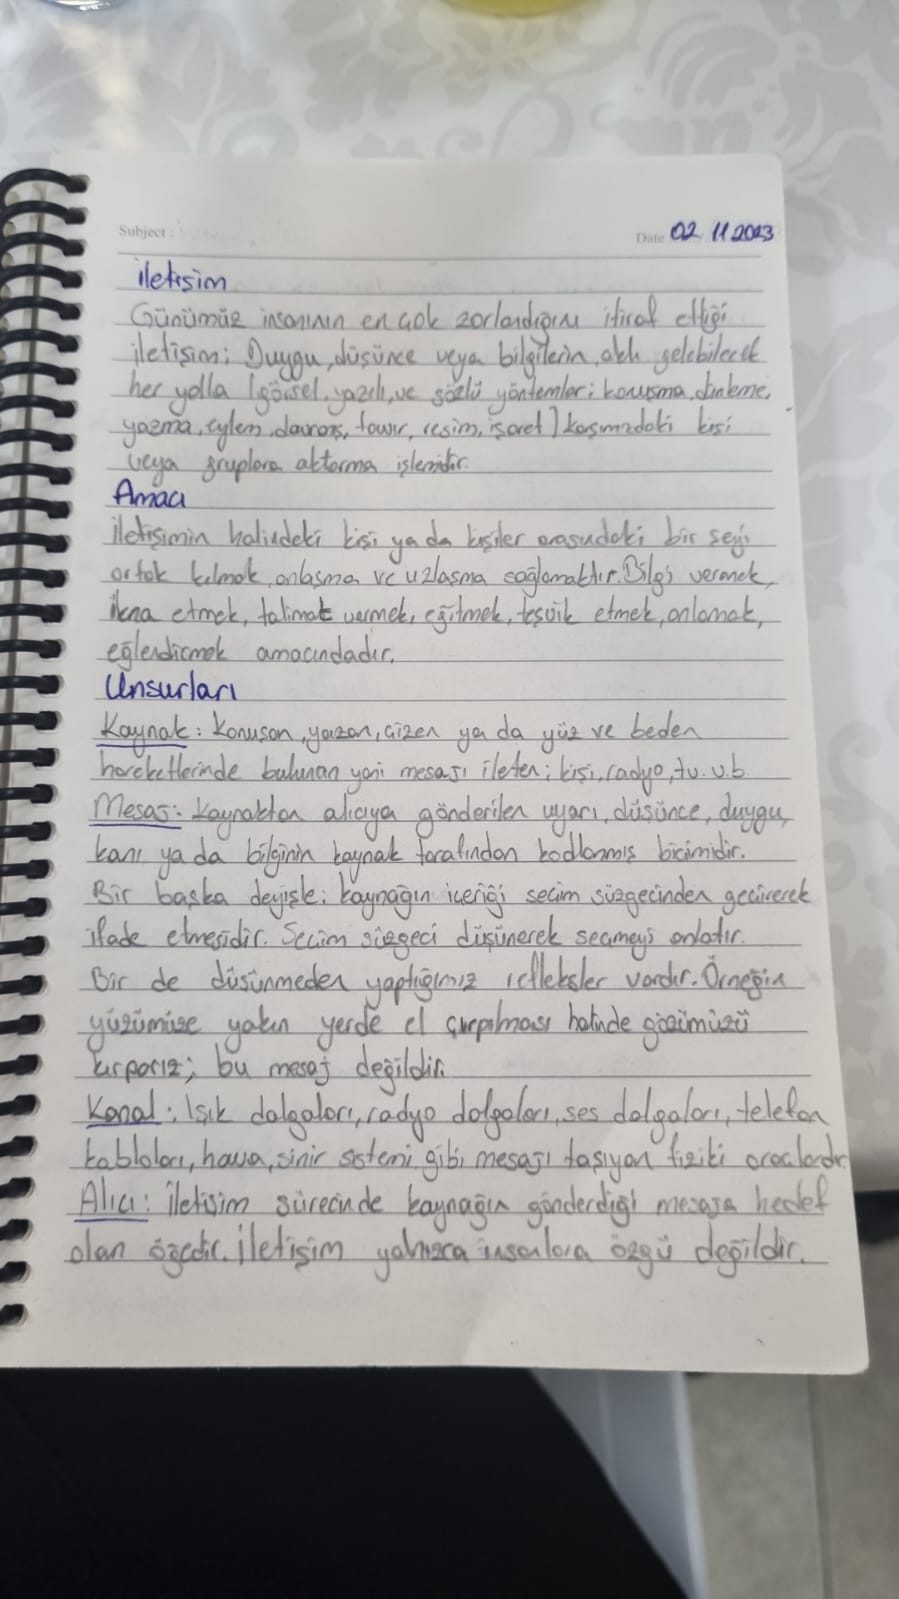 Subject :
Date 02 11 2023
iletişim
Günümüz insanının en çok zorlandığını itiraf ettiği
iletişim; Duygu, düşünce veya bilgilerin, akla gelebilecek
her yolla (görsel, yazılı, ve sözlü yöntemler; konuşma, dinleme,
yazma, eylem, davranış, tavır, resim, işaret) karşımızdaki kişi
veya gruplara aktarma işlemidir.
Amacı
iletişimin halindeki kişi ya da kişiler arasındaki bir şeyi
ortak kılmak, anlaşma ve uzlaşma sağlamaktır. Bilgi vermek,
ikna etmek, talimat vermek, eğitmek, teşvik etmek, anlamak,
eğlendirmek amacındadır.
Unsurları
Kaynak : Konuşan, yazan, çizen ya da yüz ve beden
hareketlerinde bulunan yani mesajı ileten; kişi, radyo, tv. v.b.
Mesaj : Kaynaktan alıcıya gönderilen uyarı, düşünce, duygu,
kanı ya da bilginin kaynak tarafından kodlanmış biçimidir.
Bir başka deyişle; kaynağın içeriği seçim süzgecinden geçirerek
ifade etmesidir. Seçim süzgeci düşünerek seçmeyi anlatır.
Bir de düşünmeden yaptığımız refleksler vardır. Örneğin
yüzümüze yakın yerde el çırpılması halinde gözümüzü
kırparız; bu mesaj değildir.
Kanal : Işık dalgaları, radyo dalgaları, ses dalgaları, telefon
kabloları, hava, sinir sistemi gibi mesajı taşıyan fiziki araçlardır.
Alıcı : İletişim sürecinde kaynağın gönderdiği mesaja hedef
olan öğedir. İletişim yalnızca insanlara özgü değildir.